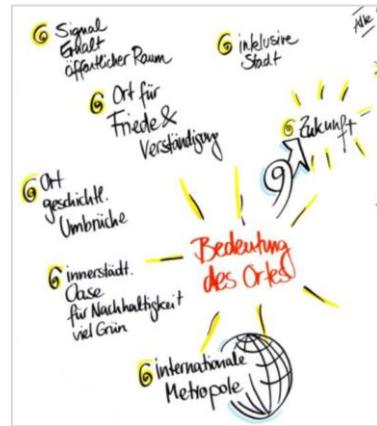 Signal
Erhalt
öffentlicher Raum
inklusive
Stadt
Alle
Ort für
Friede &
Verständigung
Zukunft
Ort
geschichtl.
Umbrüche
Bedeutung
des Ortes
innerstädt.
Oase
für Nachhaltigkeit
viel Grün
internationale
Metropole